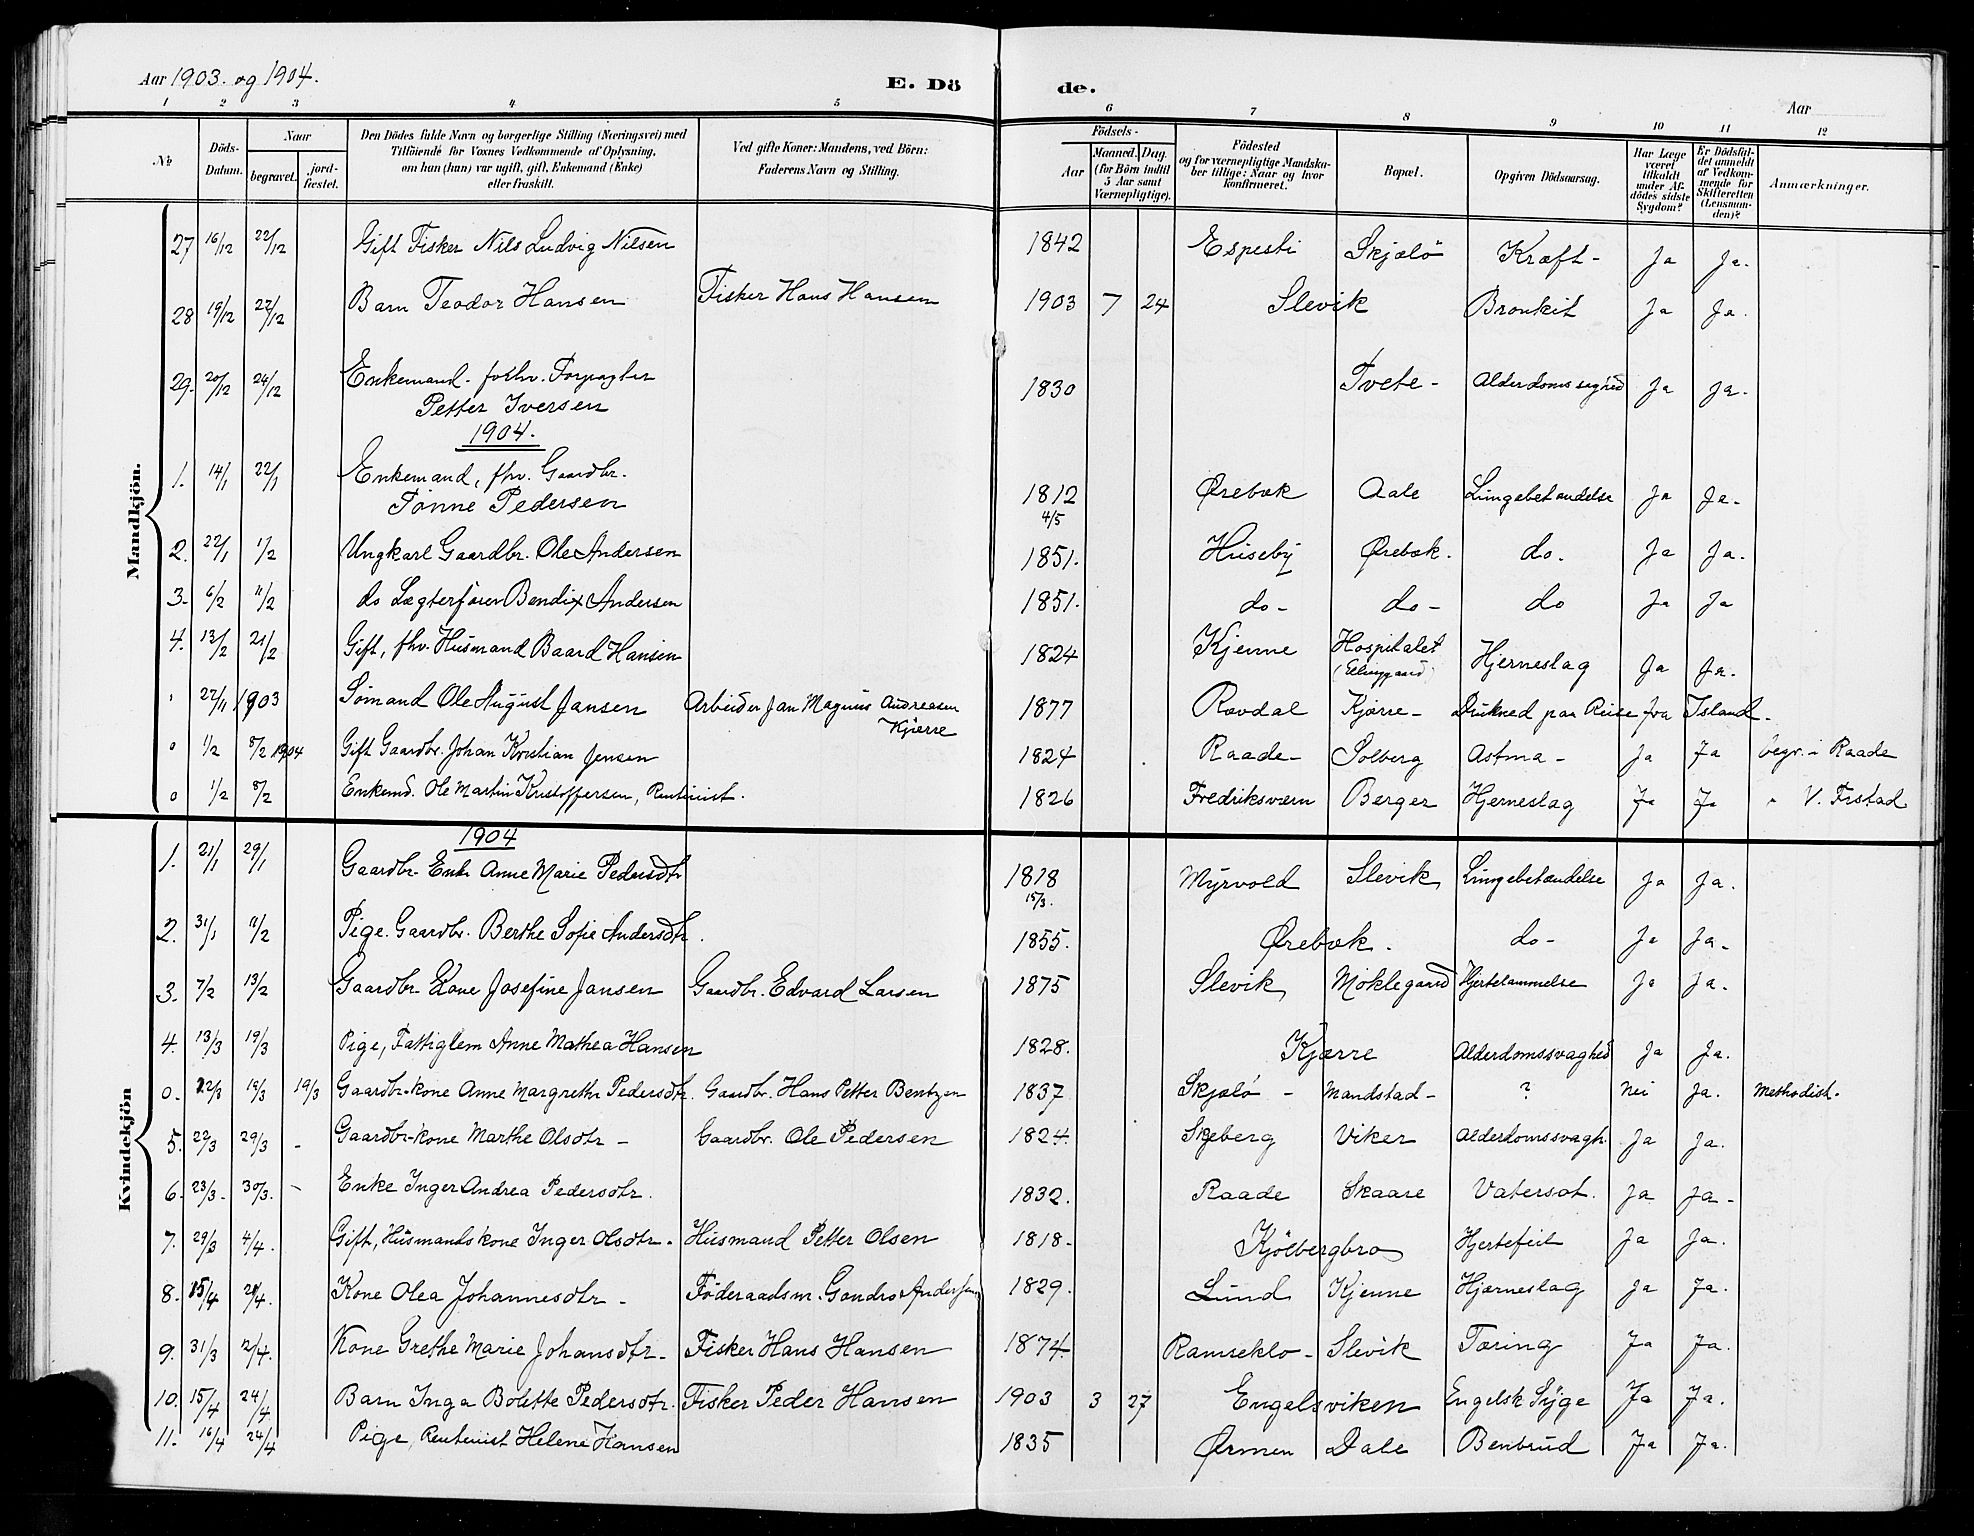 Aar 1903. og 1904.
E. Dö de.
Aar
1 2 3 4 5 6 7 8 9 10 11 12
№
Döds-Datum.
Naar
begravet.
jord-fæstet.
Den Dödes fulde Navn og borgerlige Stilling (Næringsvei) med
Tilföiende for Voxnes Vedkommende af Oplysning,
om han (hun) var ugift, gift, Enkemand (Enke)
eller fraskilt.
Ved gifte Koner: Mandens, ved Börn:
Faderens Navn og Stilling.
Födsels-
Aar
Maaned. Dag.
(for Börn indtil
5 Aar samt
Værnepligtige).
Födested
og for værnepligtige Mandska-
ber tillige: Naar og hvor
konfirmeret.
Bopæl.
Opgiven Dödsaarsag.
Har Læge
været
tilkaldt
under Af-
dödes sidste
Sygdom?
Er Dödsfal-
det anmeldt
af Vedkom-
mende for
Skifteretten
(Lensman-
den)?
Anmærkninger.
Mandkjön.
27 16/12 22/12 Gift Fisker Nils Ludvig Nilsen 1842 Espesti Skjælö Kræft- Ja Ja.
28 19/12 27/12 Barn Teodor Hansen Fisker Hans Hansen 1903 7 24 Slevik Bronkit Ja Ja.
29. 20/12 24/12 Enkemand. forhv. Forpagter
Petter Iversen 1830 Tvete- Alderdomssvaghed Ja Ja.
1904.
1. 14/1 22/1 Enkemand, fhv. Gaardbr.
Tønne Pedersen 1812 4/5 Ørebæk Aale Lungebetændelse Ja Ja-
2. 22/1 1/2 Ungkarl Gaardbr. Ole Andersen 1851. Huseby Ørebæk. do. Ja Ja.
3. 6/2 11/2 do Lægterfører Bendix Andersen 1851. do- do- do Ja Ja
4. 13/2 21/2 Gift, fhv. Husmand Baard Hansen 1824 Kjenne Hospitalet
(Elinggaard) Hjerneslag Ja Ja.
" 27/11 1903 Sømand Ole August Jansen Arbeider Jan Magnus Andreasen
Kjærre 1877 Rovdal Kjærre- Drukned paa Reise fra Island-
o 1/2 8/2 1904 Gift Gaardbr. Johan Kristian Jensen 1824 Raade- Solberg Astma- Ja Ja begr. i Raade
o 1/2 8/2 Enkemd. Ole Martin Kristoffersen, Rentenist. 1826 Fredriksværn Berger Hjerneslag Ja Ja " V. Frstad
Kvindekjön
1904
1. 21/1 29/1 Gaardbr. Enke Anne Marie Pedersdtr 1818 15/3. Myrvold Slevik Lungebetændelse Ja Ja.
2. 31/1 11/2 Pige. Gaardbr. Berthe Sofie Andersdtr. 1855. Ørebæk. do- Ja Ja-
3. 7/2 13/2 Gaardbr Kone Josefine Jansen Gaardbr. Edvard Larsen 1875 Slevik Möklegaard Hjertelammelse Ja Ja.
4. 13/3 19/3 Pige, Fattiglem Anne Mathea Hansen 1828. Kjærre Alderdomssvaghed Ja Ja.
o. 12/3 19/3 19/3 Gaardbr-kone Anne Margrethe Pedersdtr. Gaardbr. Hans Petter Bentzen 1837 Skjælö- Mandstad- ? Nei Ja. Methodist.
5. 22/3 29/3 - Gaardbr-kone Marthe Olsdtr- Gaardbr. Ole Pedersen 1824. Skjeberg Viker Alderdomssvagh. Ja Ja.
6. 23/3- 30/3. - Enke Inger Andrea Pedersdtr. 1832. Raade Skaare Vatersot. Ja Ja-
7. 29/3 4/4. Gift, Husmandskone Inger Olsdtr. Husmand Petter Olsen 1818. Kjölbergbro Hjertefeil Ja Ja.
8. 15/4 21/4. Kone Olea Johannesdtr- Föderaadsm. Gondro Andersen 1829. Lund Kjenne Hjærneslag Ja Ja.
9. 31/3 12/4. Kone Grethe Marie Johansdtr- Fisker Hans Hansen 1874. Ramseklo- Slevik Tæring Ja Ja.
10. 15/4 24/4 Barn Inga Bolette Pedersdtr. Fisker Peder Hansen 1903 3 27 Engelsviken Engelsk Syge Ja Ja.
11. 16/4 24/4 Pige, Rentenist Helene Hansen 1835 Ørmen Dale Benbrud Ja Ja.